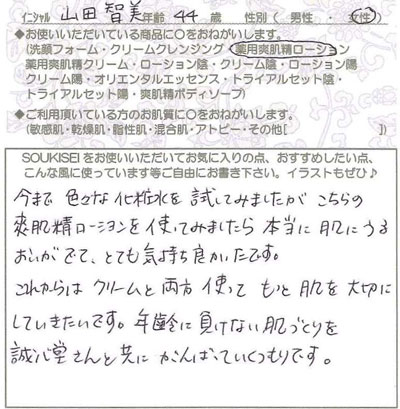 ｲﾆｼｬﾙ 山田智美 年齢 44 歳 性別( 男性 ・ 女性 )
◆お使いいただいている商品に○をおねがいします。
(洗顔フォーム・クリームクレンジング・薬用爽肌精ローション
薬用爽肌精クリーム・ローション陰・クリーム陰・ローション陽
クリーム陽・オリエンタルエッセンス・トライアルセット陰・
トライアルセット陽・爽肌精ボディソープ)
◆ご利用頂いている方のお肌質に○をおねがいします。
(敏感肌・乾燥肌・脂性肌・混合肌・アトピー・その他[ ])
SOUKISEIをお使いいただいてお気に入りの点、おすすめしたい点、
こんな風に使っています等ご自由にお書き下さい。イラストもぜひ♪
今まで 色々な化粧水を 試してみましたが こちらの
爽肌精ローションを使ってみましたら 本当に 肌にうる
おいがでて、とても気持ち良かったです。
これからは クリームと両方 使って もっと 肌を大切に
していきたいです。年齢に負けない肌づくりを
誠心堂さんと共に がんばっていくつもりです。